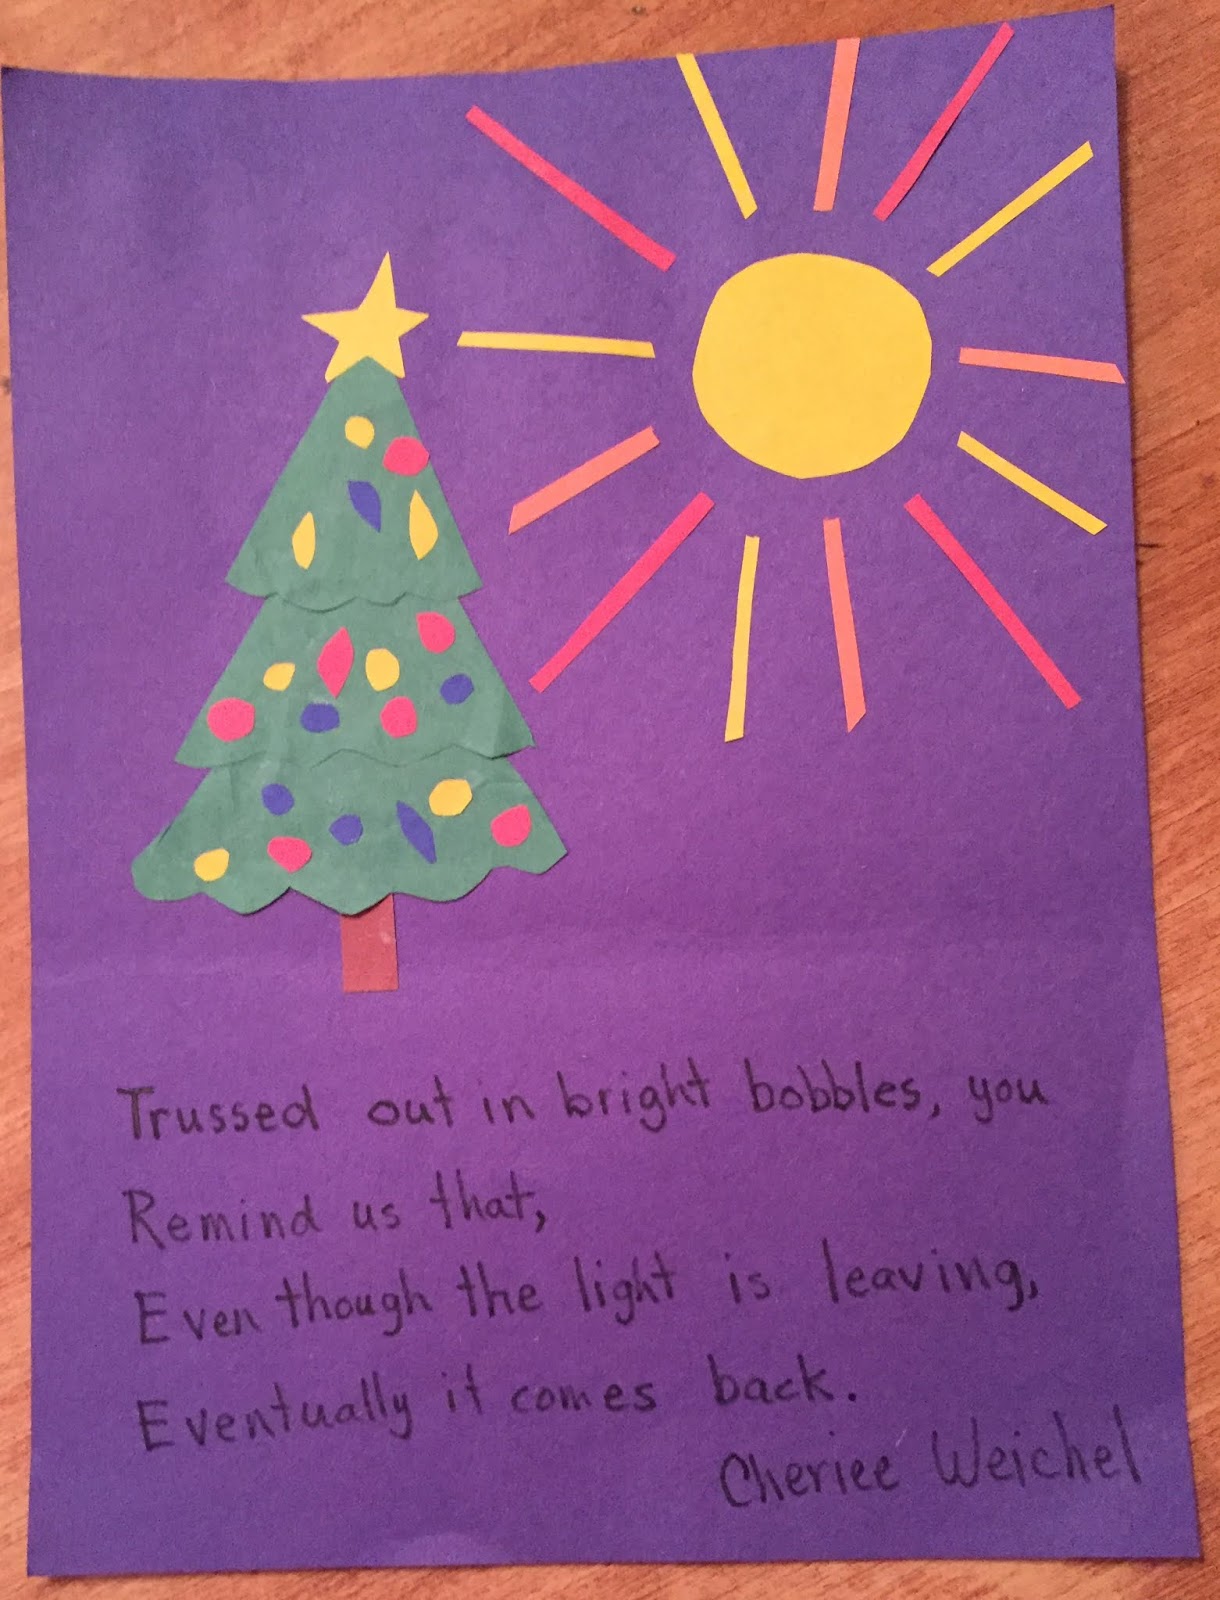 Trussed out in bright bobbles, you
Remind us that,
Even though the light is leaving,
Eventually it comes back.
Cheriee Weichel